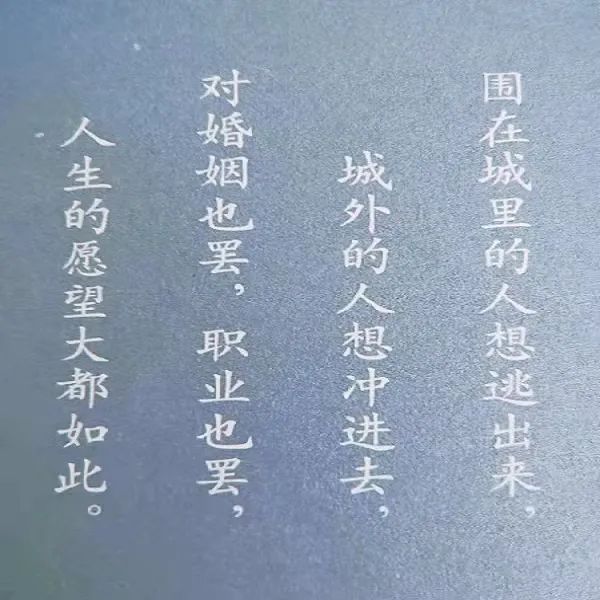 围在城里的人想逃出来，
城外的人想冲进去，
对婚姻也罢，职业也罢，
人生的愿望大都如此。